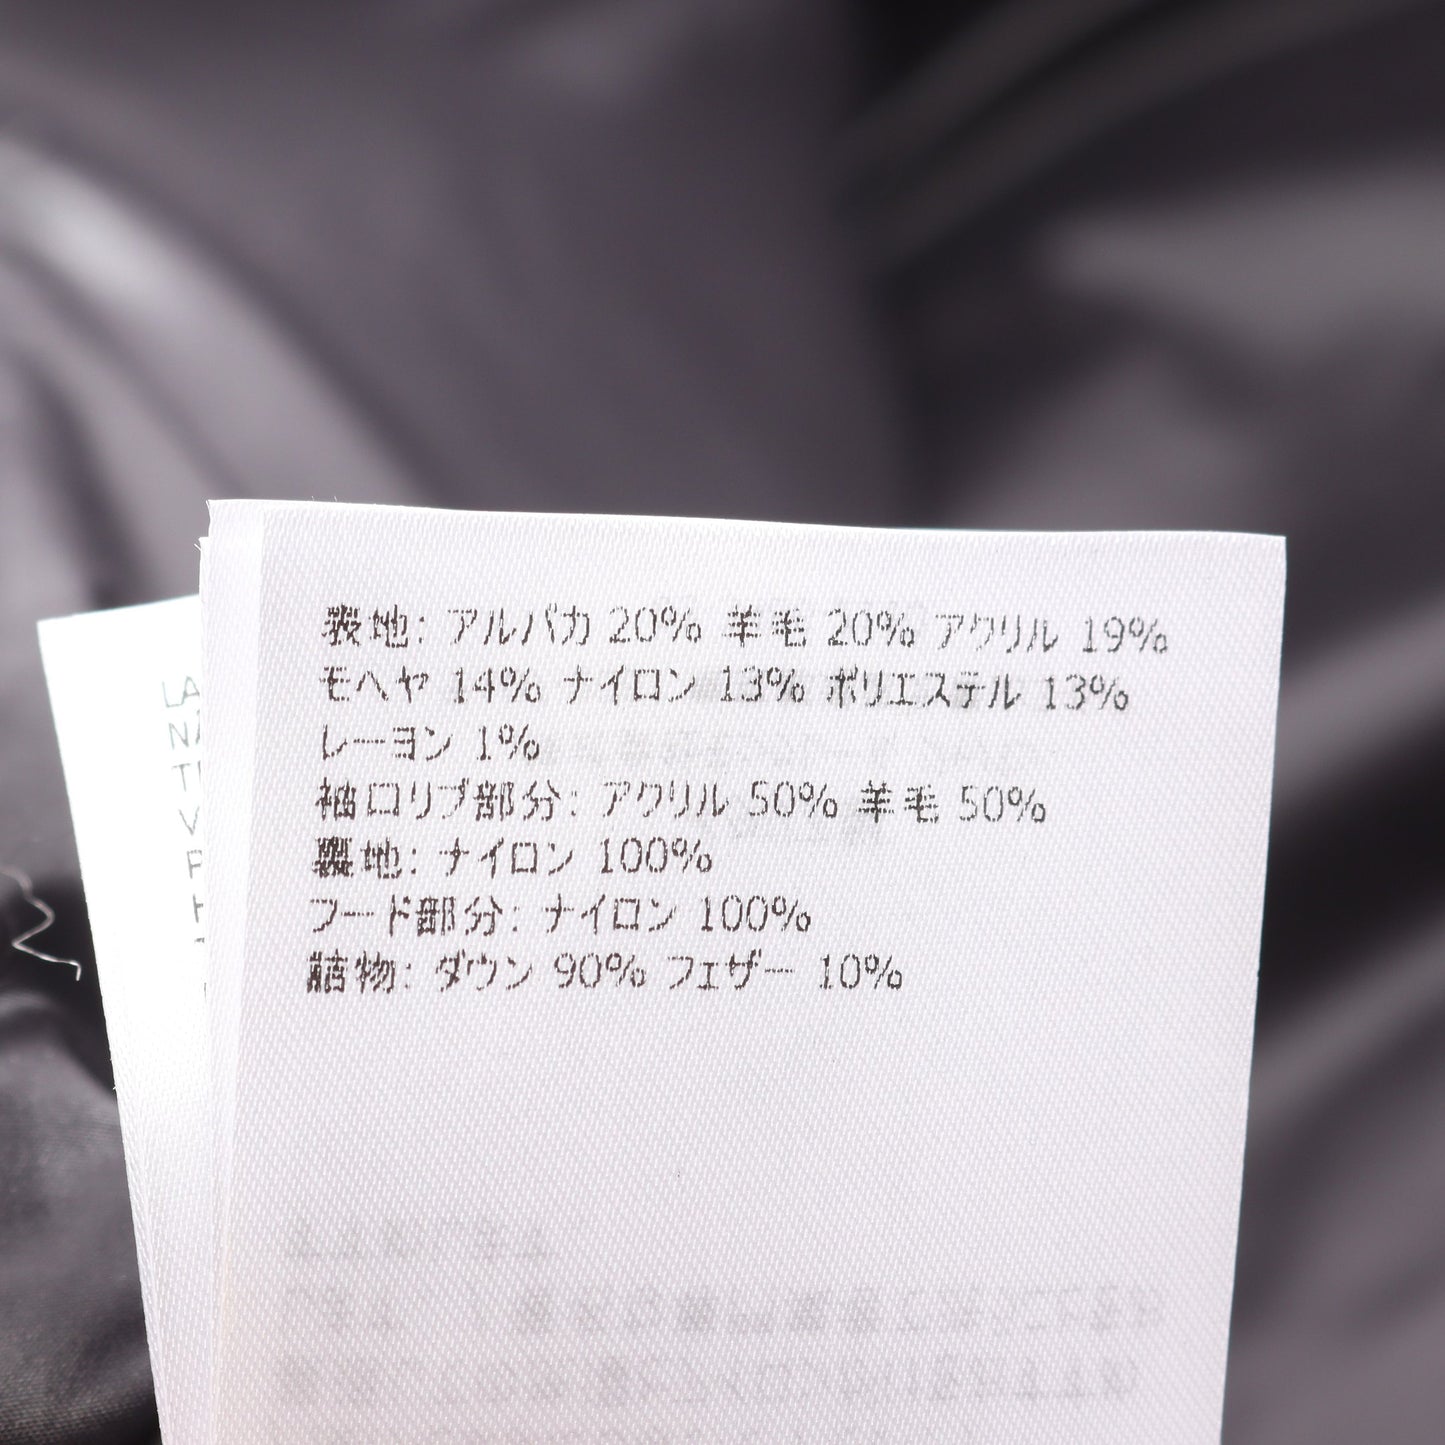 表地: アルパカ 20% 羊毛 20% アクリル 19%
モヘヤ 14% ナイロン 13% ポリエステル 13%
レーヨン 1%
袖口リブ部分: アクリル 50% 羊毛 50%
裏地: ナイロン 100%
フード部分: ナイロン 100%
詰物: ダウン 90% フェザー 10%